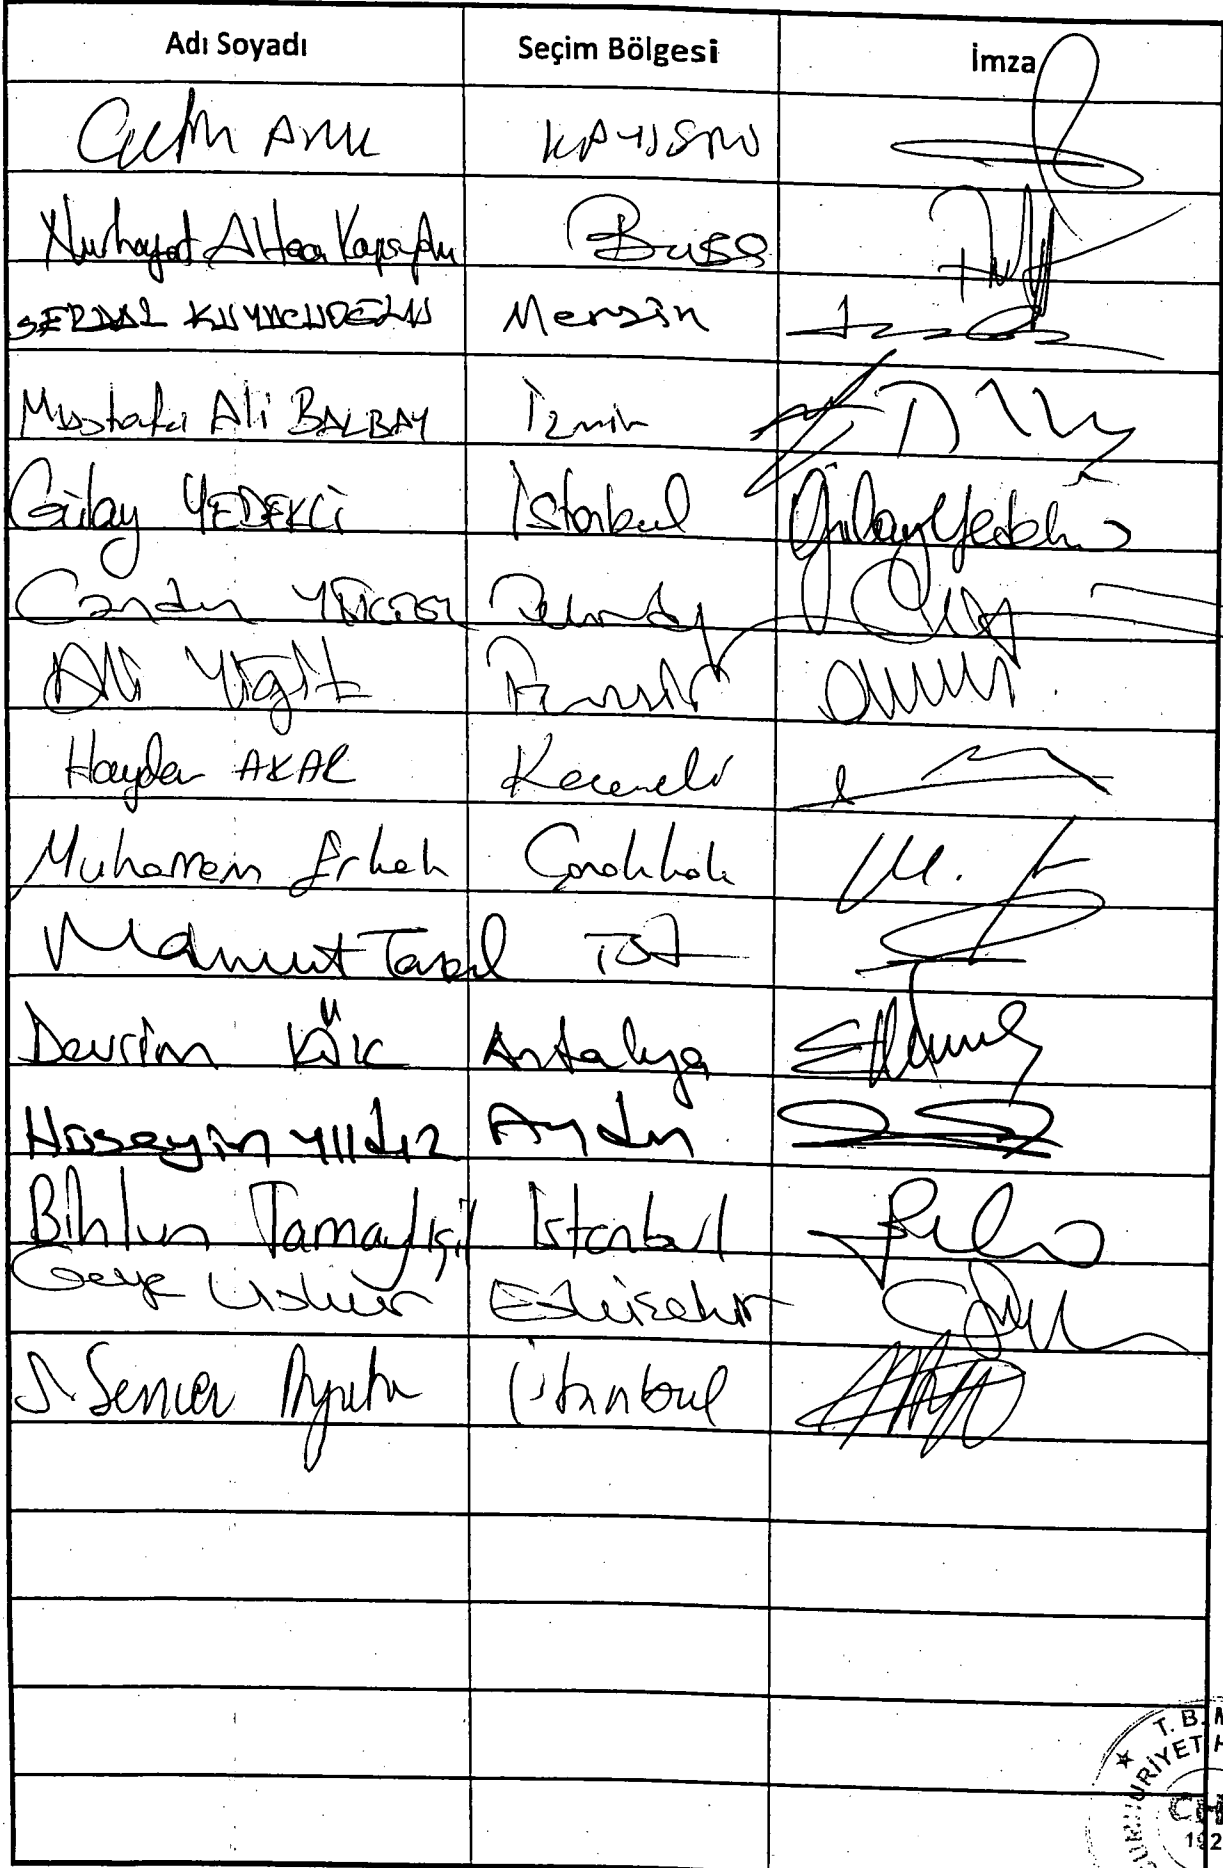 Adı Soyadı Seçim Bölgesi İmza
Çetin Arık KAYSERİ
Nurhayat Altaca Kayışoğlu Bursa
SERDAL KUYUCUOĞLU Mersin
Mustafa Ali BALBAY İzmir
Gülay YEDEKCİ İstanbul Gülay Yedekci
Candan YÜCEER Tekirdağ
Ali Yiğit İzmir
Haydar AKAR Kocaeli
Muharrem Erkek Çanakkale
Mahmut Tanal İST
Devrim KÖK Antalya
Hüseyin Yıldız Aydın
Bihlun Tamaylıgil İstanbul
Gaye Usluer Eskişehir
S. Sencer Ayata İstanbul
T. B. M
CUMHURİYET H
CH
192